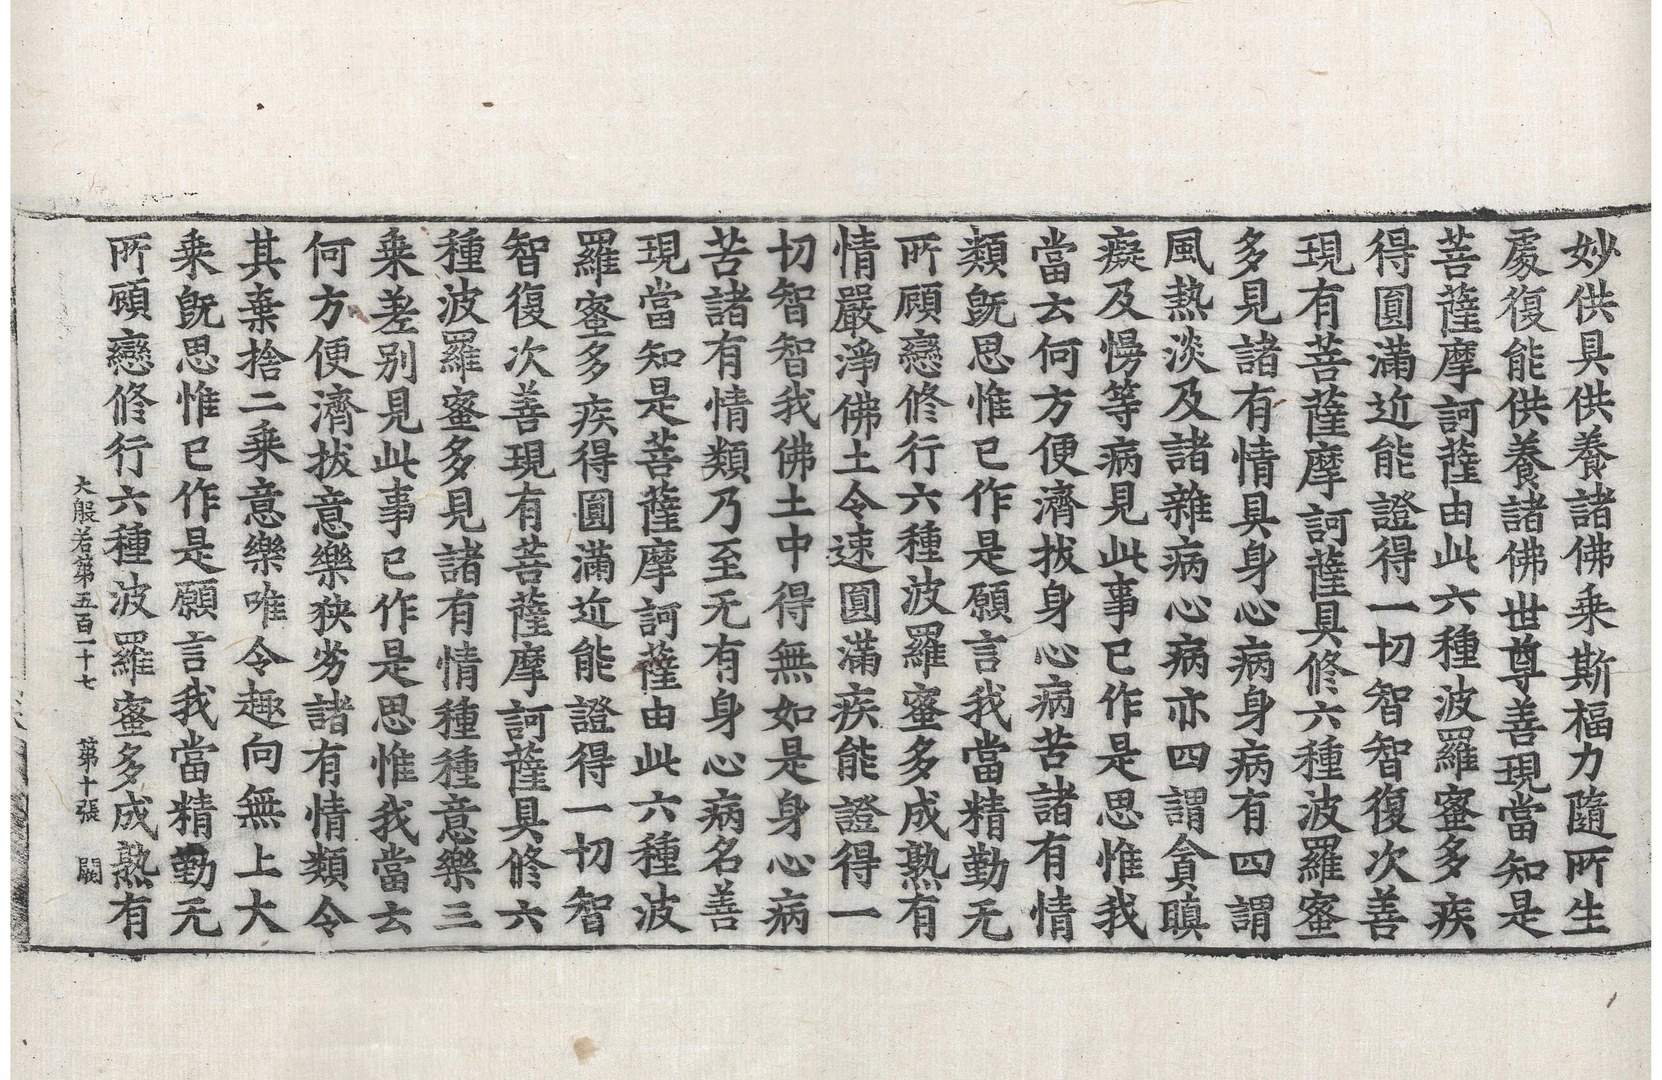 妙供具供養諸佛乗斯福力隨所生
處復能供養諸佛世尊善現當知是
菩薩摩訶薩由此六種波羅蜜多疾
得圓滿近能證得一切智智復次善
現有菩薩摩訶薩具修六種波羅蜜
多見諸有情具身心病身病有四謂
風熱淡及諸雜病心病亦四謂貪瞋
癡及慢等病見此事已作是思惟我
當云何方便濟拔身心病苦諸有情
類既思惟已作是願言我當精勤无
所顧戀修行六種波羅蜜多成熟有
情嚴淨佛土令速圓滿疾能證得一
切智智我佛土中得無如是身心病
苦諸有情類乃至无有身心病名善
現當知是菩薩摩訶薩由此六種波
羅蜜多疾得圓滿近能證得一切智
智復次善現有菩薩摩訶薩具修六
種波羅蜜多見諸有情種種意樂三
乗差別見此事已作是思惟我當云
何方便濟拔意樂狹劣諸有情類令
其棄捨二乗意樂唯令趣向無上大
乗既思惟已作是願言我當精勤无
所顧戀修行六種波羅蜜多成熟有
大般若第五百二十七 第十張 闕